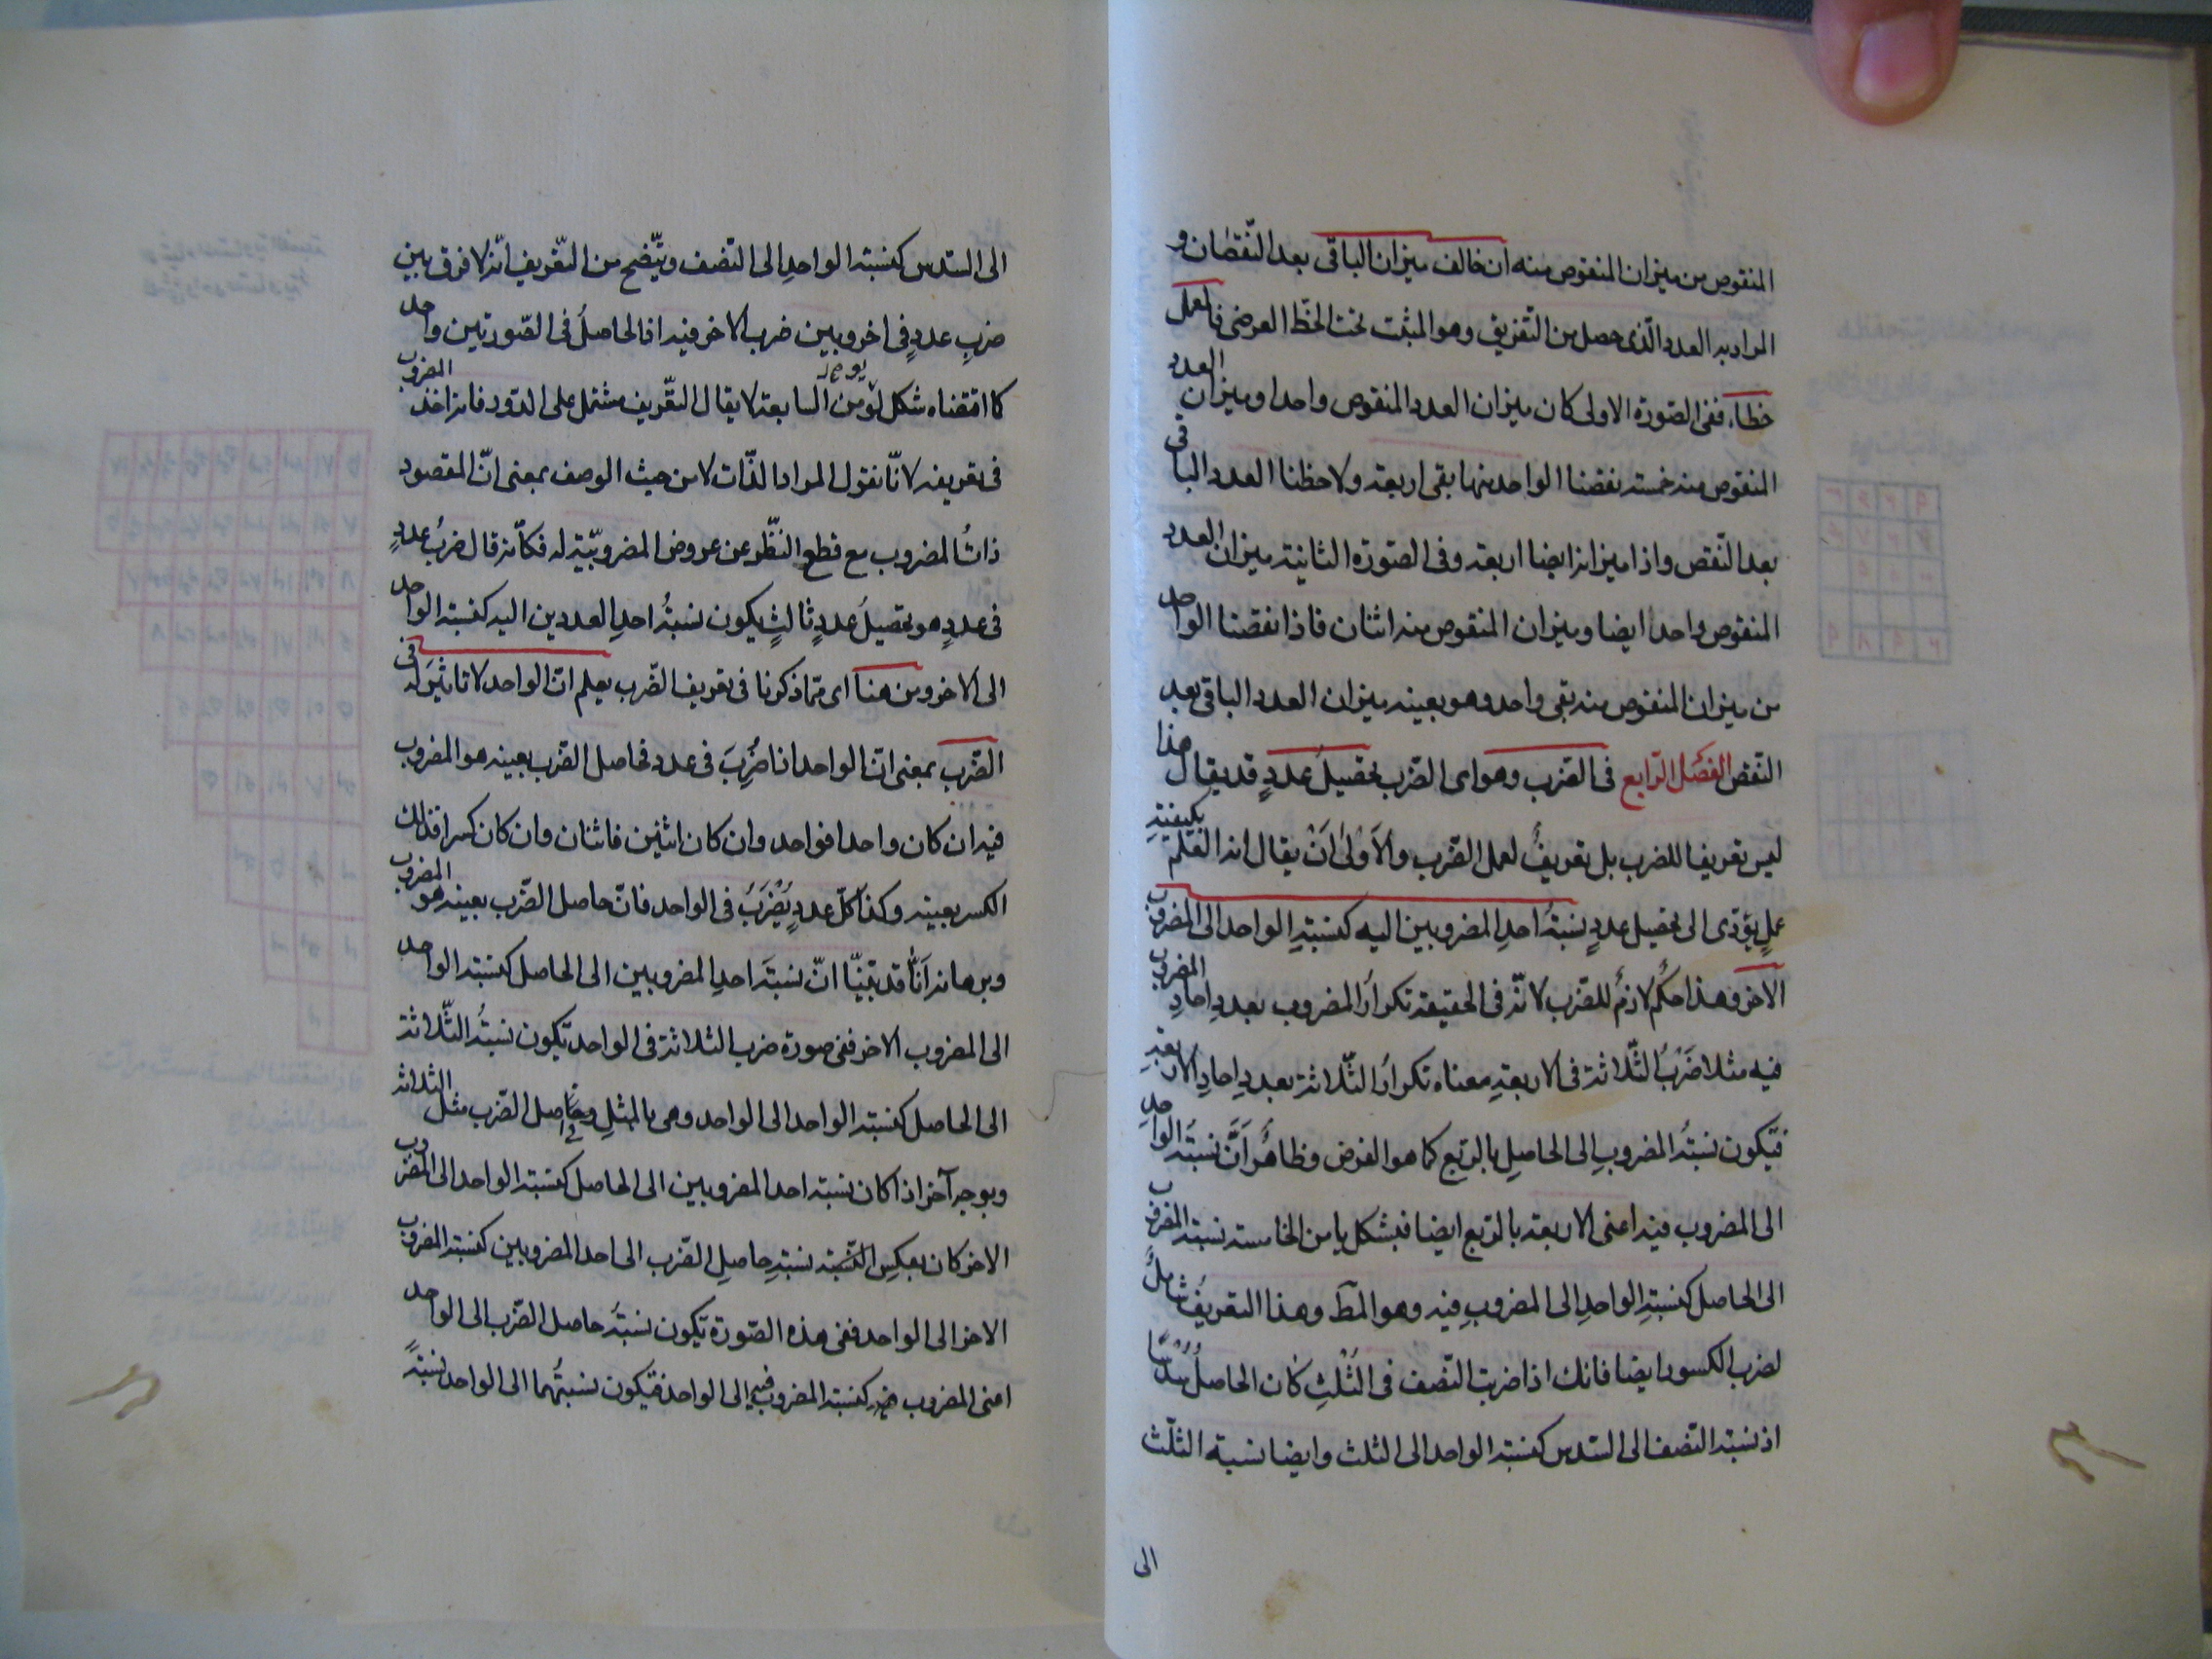 المنقوص من ميزان المنقوص منه ان خالف ميزان الباقى بعد النّقصان و
المراد به العدد الّذى حصل من التّفريق وهو المثبت تحت الخطّ العرضى فالعمل
خطاء، ففى الصّورة الاولى كان ميزان العدد المنقوص واحدا وميزان العدد
المنقوص منه خمسة نقصنا الواحد منها بقى اربعة ولاحظنا العدد الباقى
بعد النّقص واذا ميزانه ايضا اربعة وفى الصّورة الثانية ميزان العدد
المنقوص واحدا ايضا وميزان المنقوص منه اثنان فاذا نقصنا الواحد
من ميزان المنقوص منه بقى واحد وهو بعينه ميزان العدد الباقى بعد
النّقص الفصل الرّابع فى الضّرب وهو اى الضّرب تحصيلُ عددٍ قد يقال هذا
ليس تعريفا للضرب بل تعريفٌ لعمل الضّرب والاَوْلىٰ اَنْ يقال انه العلم بكيفيّةِ
عملٍ يؤدّى الى تحصيل عددٍ نسبةُ احدِ المضروبين اليه كنسبةِ الواحد الى المضروب
الاخر وهذا حكمٌ لازمٌ للضّرب لانّه فى الحقيقة تكرارُ المضروب بعددِ احادِ المضروب
فيه مثلا ضَرْبُ الثّلاثة فى الاربعةِ معناه تكرارُ الثّلاثة بعددِ احادِ الاربعةِ
فتكون نسبةُ المضروبِ الى الحاصلِ بالرّبع كما هو الفرض وظاهرٌ اَنَّ نسبةَ الواحدِ
الى المضروب فيه اعنى الاربعة بالرّبع ايضا فبشكل يا من الخامسة نسبة المضروب
الى الحاصل كنسبةِ الواحدِ الى المضروبِ فيه وهو المط وهذا التعريفُ شاملٌ
لضرب الكسور ايضا فانك اذا ضربت النّصف فى الثُلْثِ كان الحاصلُ سُدُسًا
اذ نسبة النّصف الى السّدس كنسبة الواحد الى الثلث وايضا نسبة الثلْث
الى
الى السّدس كنسبة الواحدِ الى النّصف ويتّضح من التّعريف انّه لا فرق بين
ضربِ عددٍ فى اخر وبين ضرب الاخر فيه اذ الحاصلُ فى الصّورتين واحد
كما اقتضاه شكل يو من السابعة لا يقال التّعريف مشتمل على الدّور فانه اخذ المضروب
فى تعريفه لانّا نقول المراد الذّات لا من حيث الوصف بمعنى انّ المقصود
ذاتُ المضروب مع قطع النّظر عن عروض المضروبيّة له فكانّه قال ضربُ عددٍ
فى عددٍ هو تحصيلُ عددٍ ثالثٍ يكون نسبةُ احدِ العددين اليه كنسبة الواحد
الى الاخر ومن هنا اى ممّا ذكرنا فى تعريف الضّرب يعلم انّ الواحد لا تاثيرَ له فى
الضّرب بمعنى انّ الواحد اذا ضُرِبَ فى عدد فحاصل الضّرب بعينه هو المضروب
فيه ان كان واحدا فواحد وان كان اثنين فاثنان وان كان كسرا فذلك
الكسر بعينه وكذا كلّ عددٍ يُضْرَبُ فى الواحد فانّ حاصل الضّرب بعينه هو المضروب
وبرهانه اَنّا قد بيّنّا انّ نسبةَ احدِ المضروبين الى الحاصل كنسبة الواحد
الى المضروب الاخر ففى صورة ضرب الثلاثة فى الواحد تكون نسبةُ الثّلاثة
الى الحاصل كنسبة الواحد الى الواحد وهى بالمثلِ وحاصل الضّرب مثل الثلاثة
وبوجه آخر اذا كان نسبة احد المضروبين الى الحاصل كنسبة الواحد الى المضروب
الاخر كان بعكسِ النّسبة نسبةِ حاصلِ الضّرب الى احد المضروبين كنسبة المضروب
الاخر الى الواحد ففى هذه الصّورة تكون نسبةُ حاصل الضّرب الى الواحد
اعنى المضروب فيه كنسبة المضروب الى الواحد فيكون نسبتُهما الى الواحد نسبةً